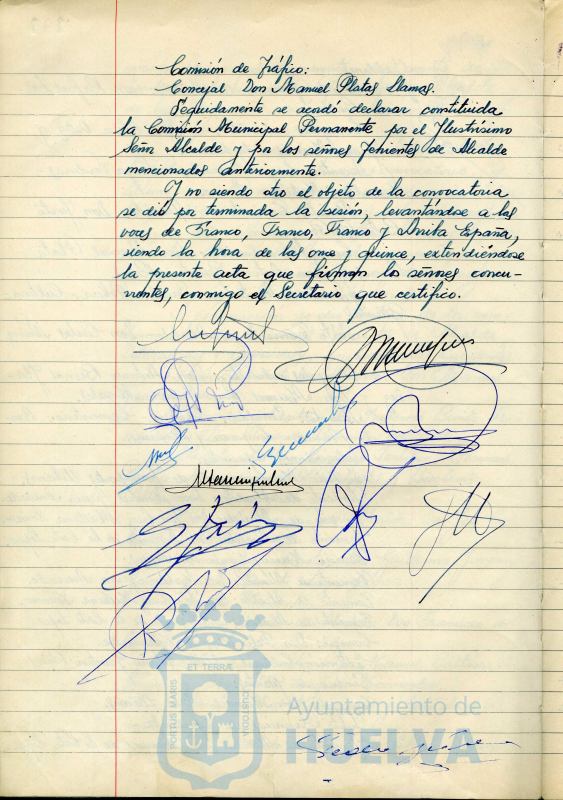 Comisión de Tráfico:
Concejal Don Manuel Platas Llamas.
Seguidamente se acordó declarar constituida
la Comisión Municipal Permanente por el Ilustrísimo
Señor Alcalde y por los señores Tenientes de Alcalde
mencionados anteriormente.
Y no siendo otro el objeto de la convocatoria
se dió por terminada la sesión, levantándose a las
voces de Franco, Franco, Franco y Arriba España,
siendo la hora de las once y quince, extendiéndose
la presente acta que firman los señores concu-
rrentes, conmigo el Secretario que certifico.
PORTUS MARIS
ET TERRÆ
CUSTODIA
Ayuntamiento de
HUELVA